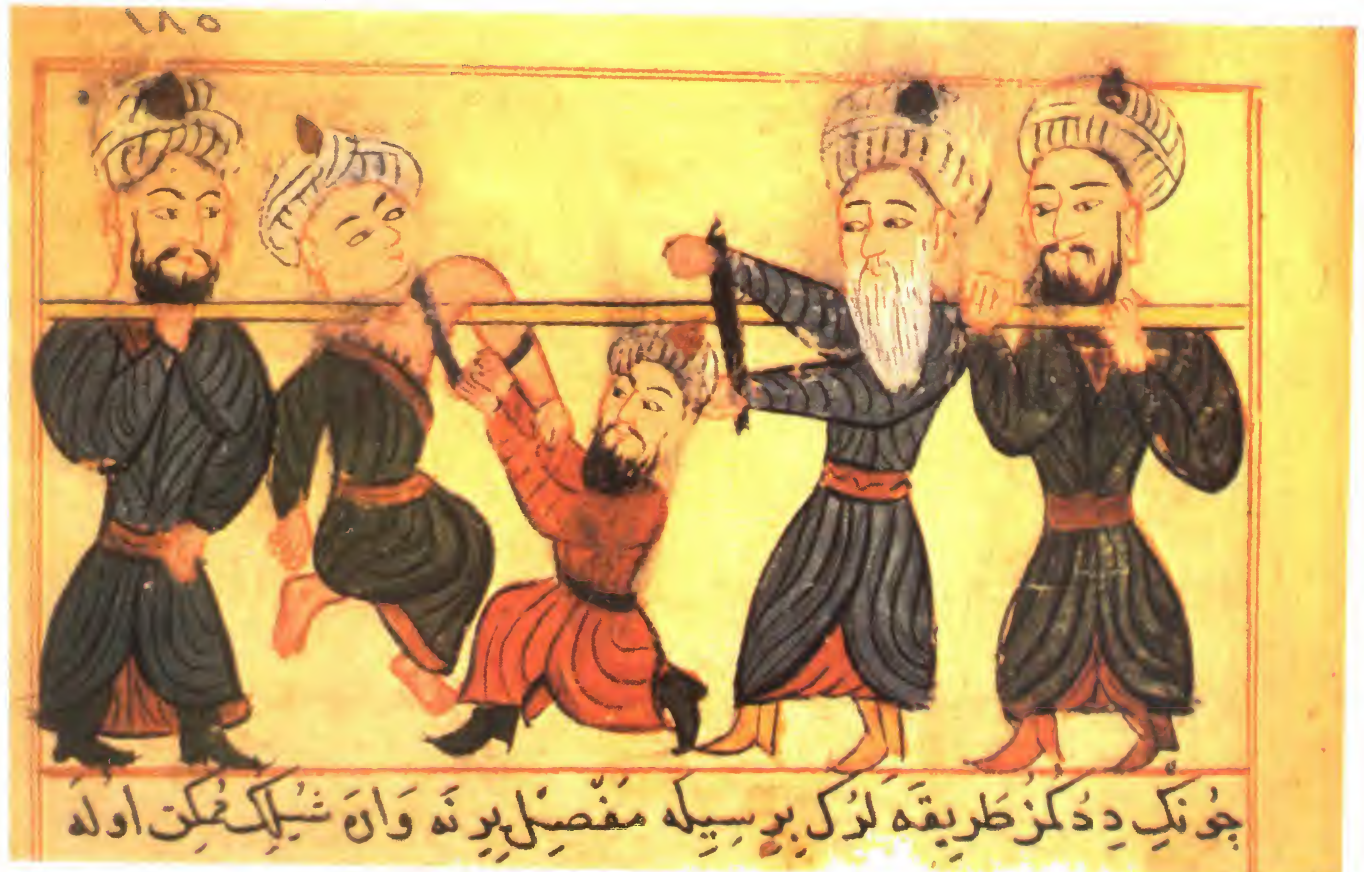 ١٨٥
جُونكِ دِدُكمُز طَرِيقَه لَرُك بِرِسِيلَه مَفْصِل يِرِنَه وَارَه شُيلِكِ مُمكِن اولَه